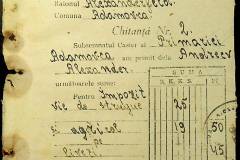 Raionul Alexanderfeld.
Comuna Adamovca
Chitanță Nr. 2.
Subsemnatul Casier al Primariei
Adamovca am primit dela Andreev
Alexander.
următoarele sume:
SUMA
R.K.K.S. M
Pentru Impozit
vie de strugur 25
și agricol 19
pe
livezi
50
45